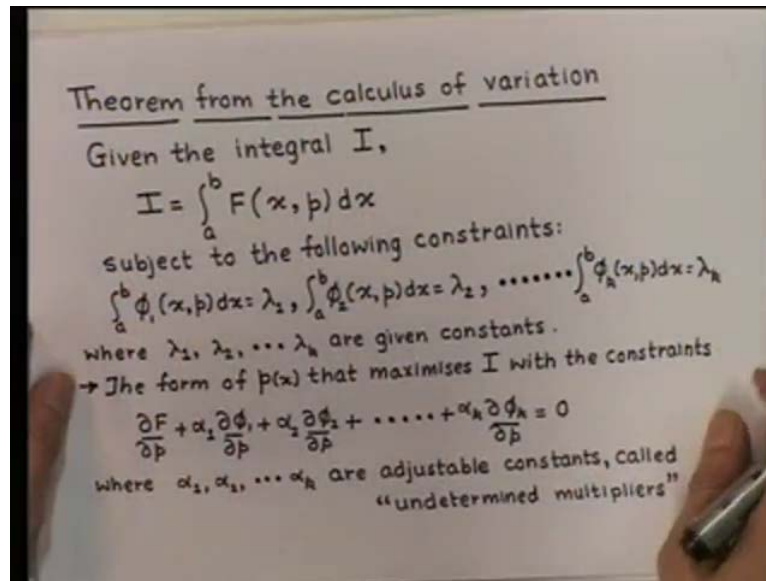 Theorem from the calculus of variation
Given the integral I,
I = ∫ₐᵇ F(x, p) dx
subject to the following constraints:
∫ₐᵇ ϕ₁(x, p) dx = λ₁, ∫ₐᵇ ϕ₂(x, p) dx = λ₂, ....... ∫ₐᵇ ϕₖ(x, p) dx = λₖ
where λ₁, λ₂, ... λₖ are given constants.
→ The form of p(x) that maximises I with the constraints
∂F/∂p + α₁ ∂ϕ₁/∂p + α₂ ∂ϕ₂/∂p + ..... + αₖ ∂ϕₖ/∂p = 0
where α₁, α₂, ... αₖ are adjustable constants, called
“undetermined multipliers”